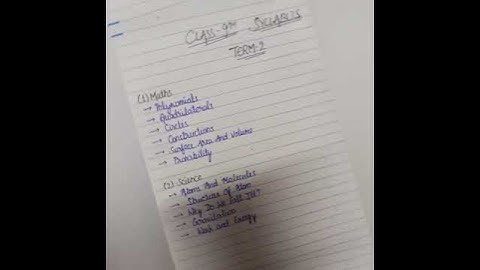 CLASS-9TH SYLLABUS
TERM-2
(1) Maths
→ Polynomials
→ Quadrilaterals
→ Circles
→ Constructions
→ Surface Area And Volume
→ Durability
(2) Science
→ Atoms And Molecules
→ Structure Of Atom
→ Why Do We Fall Ill?
→ Gravitation
→ Work and Energy